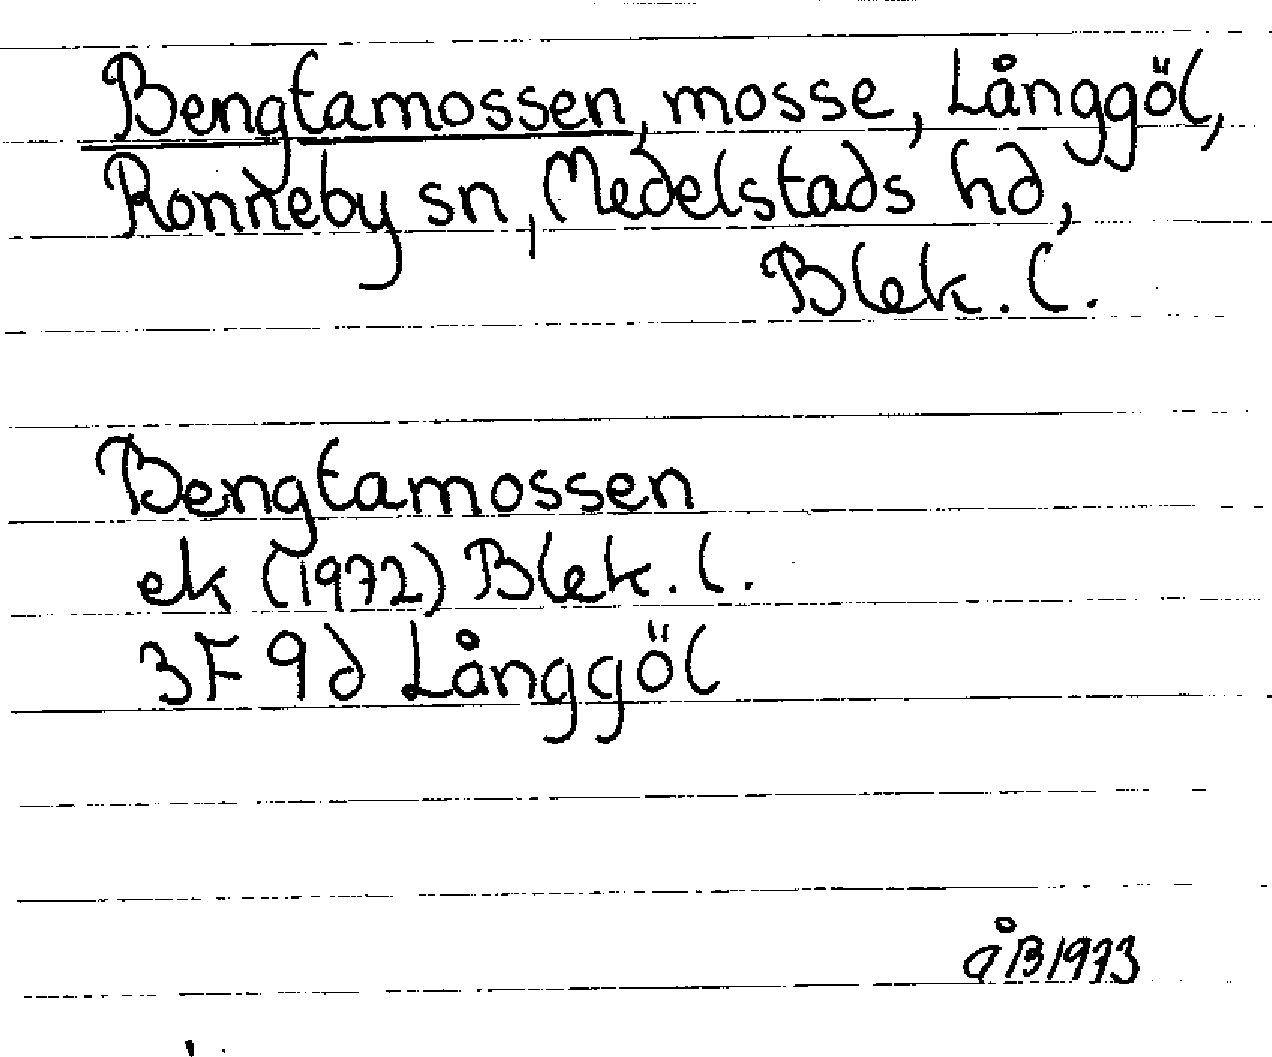 Bengtamossen, mosse, Långgöl,
Ronneby sn, Medelstads hd,
Blek. l.
Bengtamossen
ek (1972) Blek. l.
3F 9d Långgöl
åB 1973